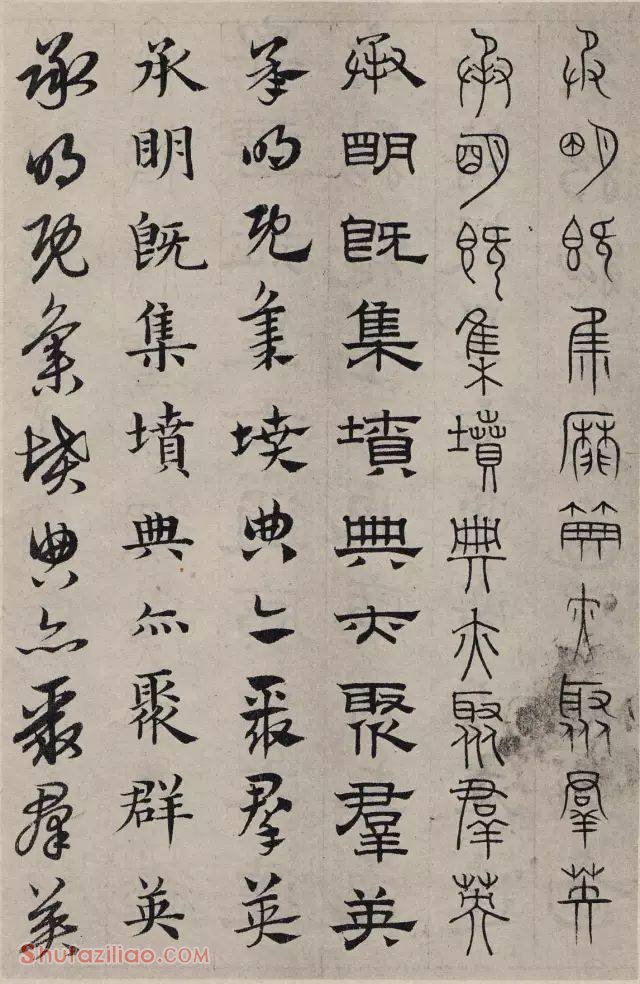 承明既集墳典亦聚羣英
承明既集墳典亦聚羣英
承明既集墳典亦聚羣英
承明既集墳典亦聚羣英
承明既集墳典亦聚群英
承明既集墳典亦聚羣英
Shufaziliao.com